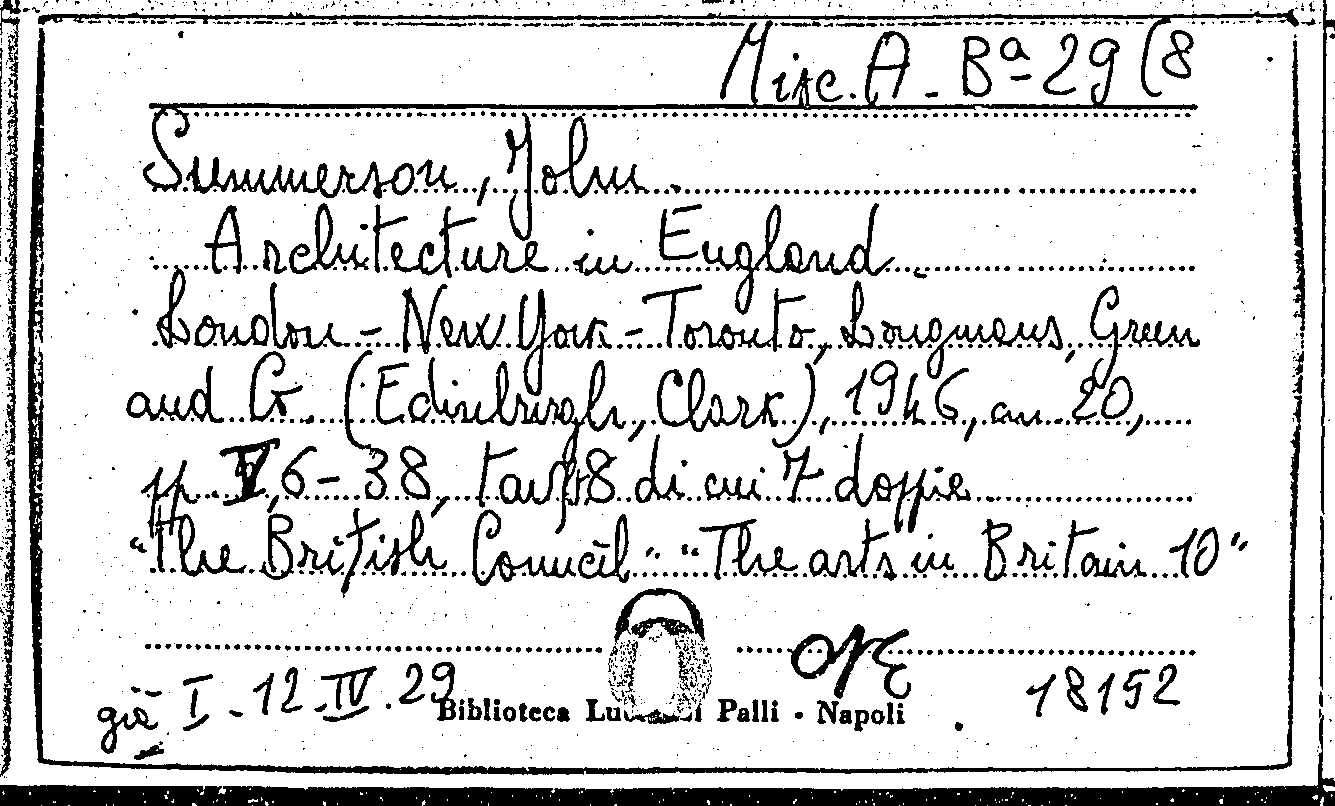 Misc. A - Bª - 29 (8
Summerson, John.
Architecture in England.
London - New York - Toronto, Longmans, Green
and Co. (Edinburgh, Clark), 1946, cm. 20,
pp. V, 6 - 38, tav. 48 di cui 7 doppie
"The British Council" "The arts in Britain 10"
già I - 12 - IV . 29
18152
Biblioteca Palli · Napoli